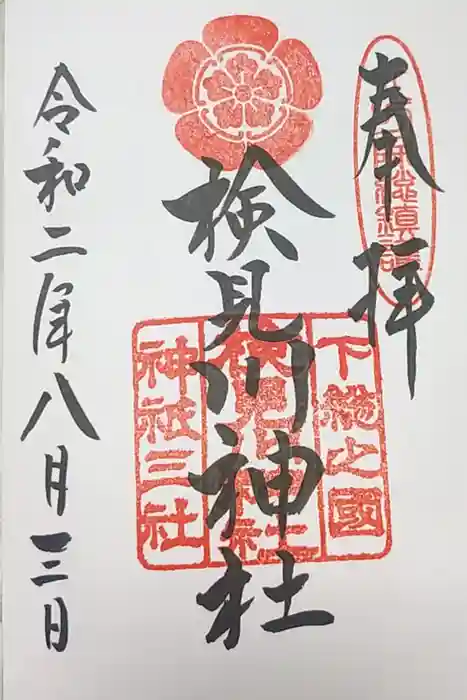 奉拝
総鎮護
検見川神社
下総之國
検見川神社
神祇三社
令和二年八月三日